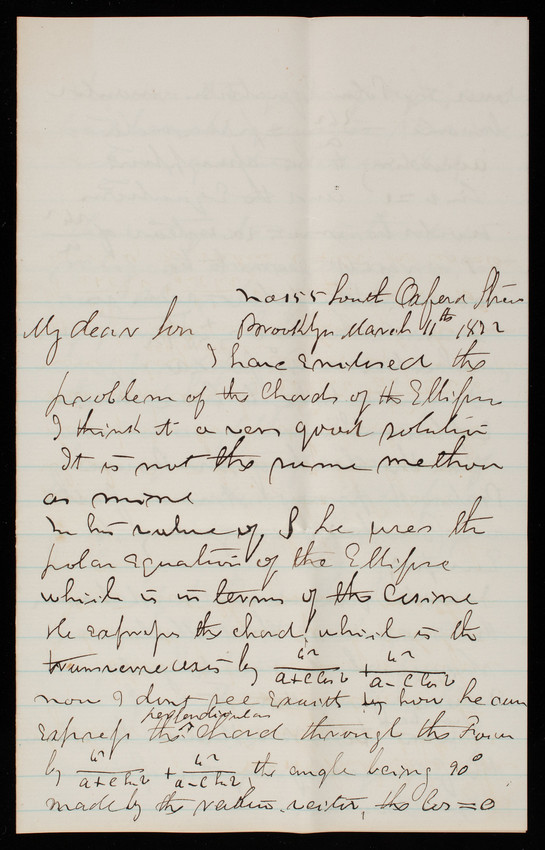 No 155 South Oxford Street
Brooklyn March 11th 1872
My dear Son
I have Enclosed the
problem of the Chords of the Ellipse
I think it a very good solution
It is not the same method
as mine
In his value of he uses the
polar Equation of the Ellipse
which is in terms of the Cosine
He Expresses the chord which is the
transverse axis by + 
now I dont see Exactly how he can
Express the perpendicular Chord through the Focus
by + the angle being 90°
made by the radius vector, the Cos = 0